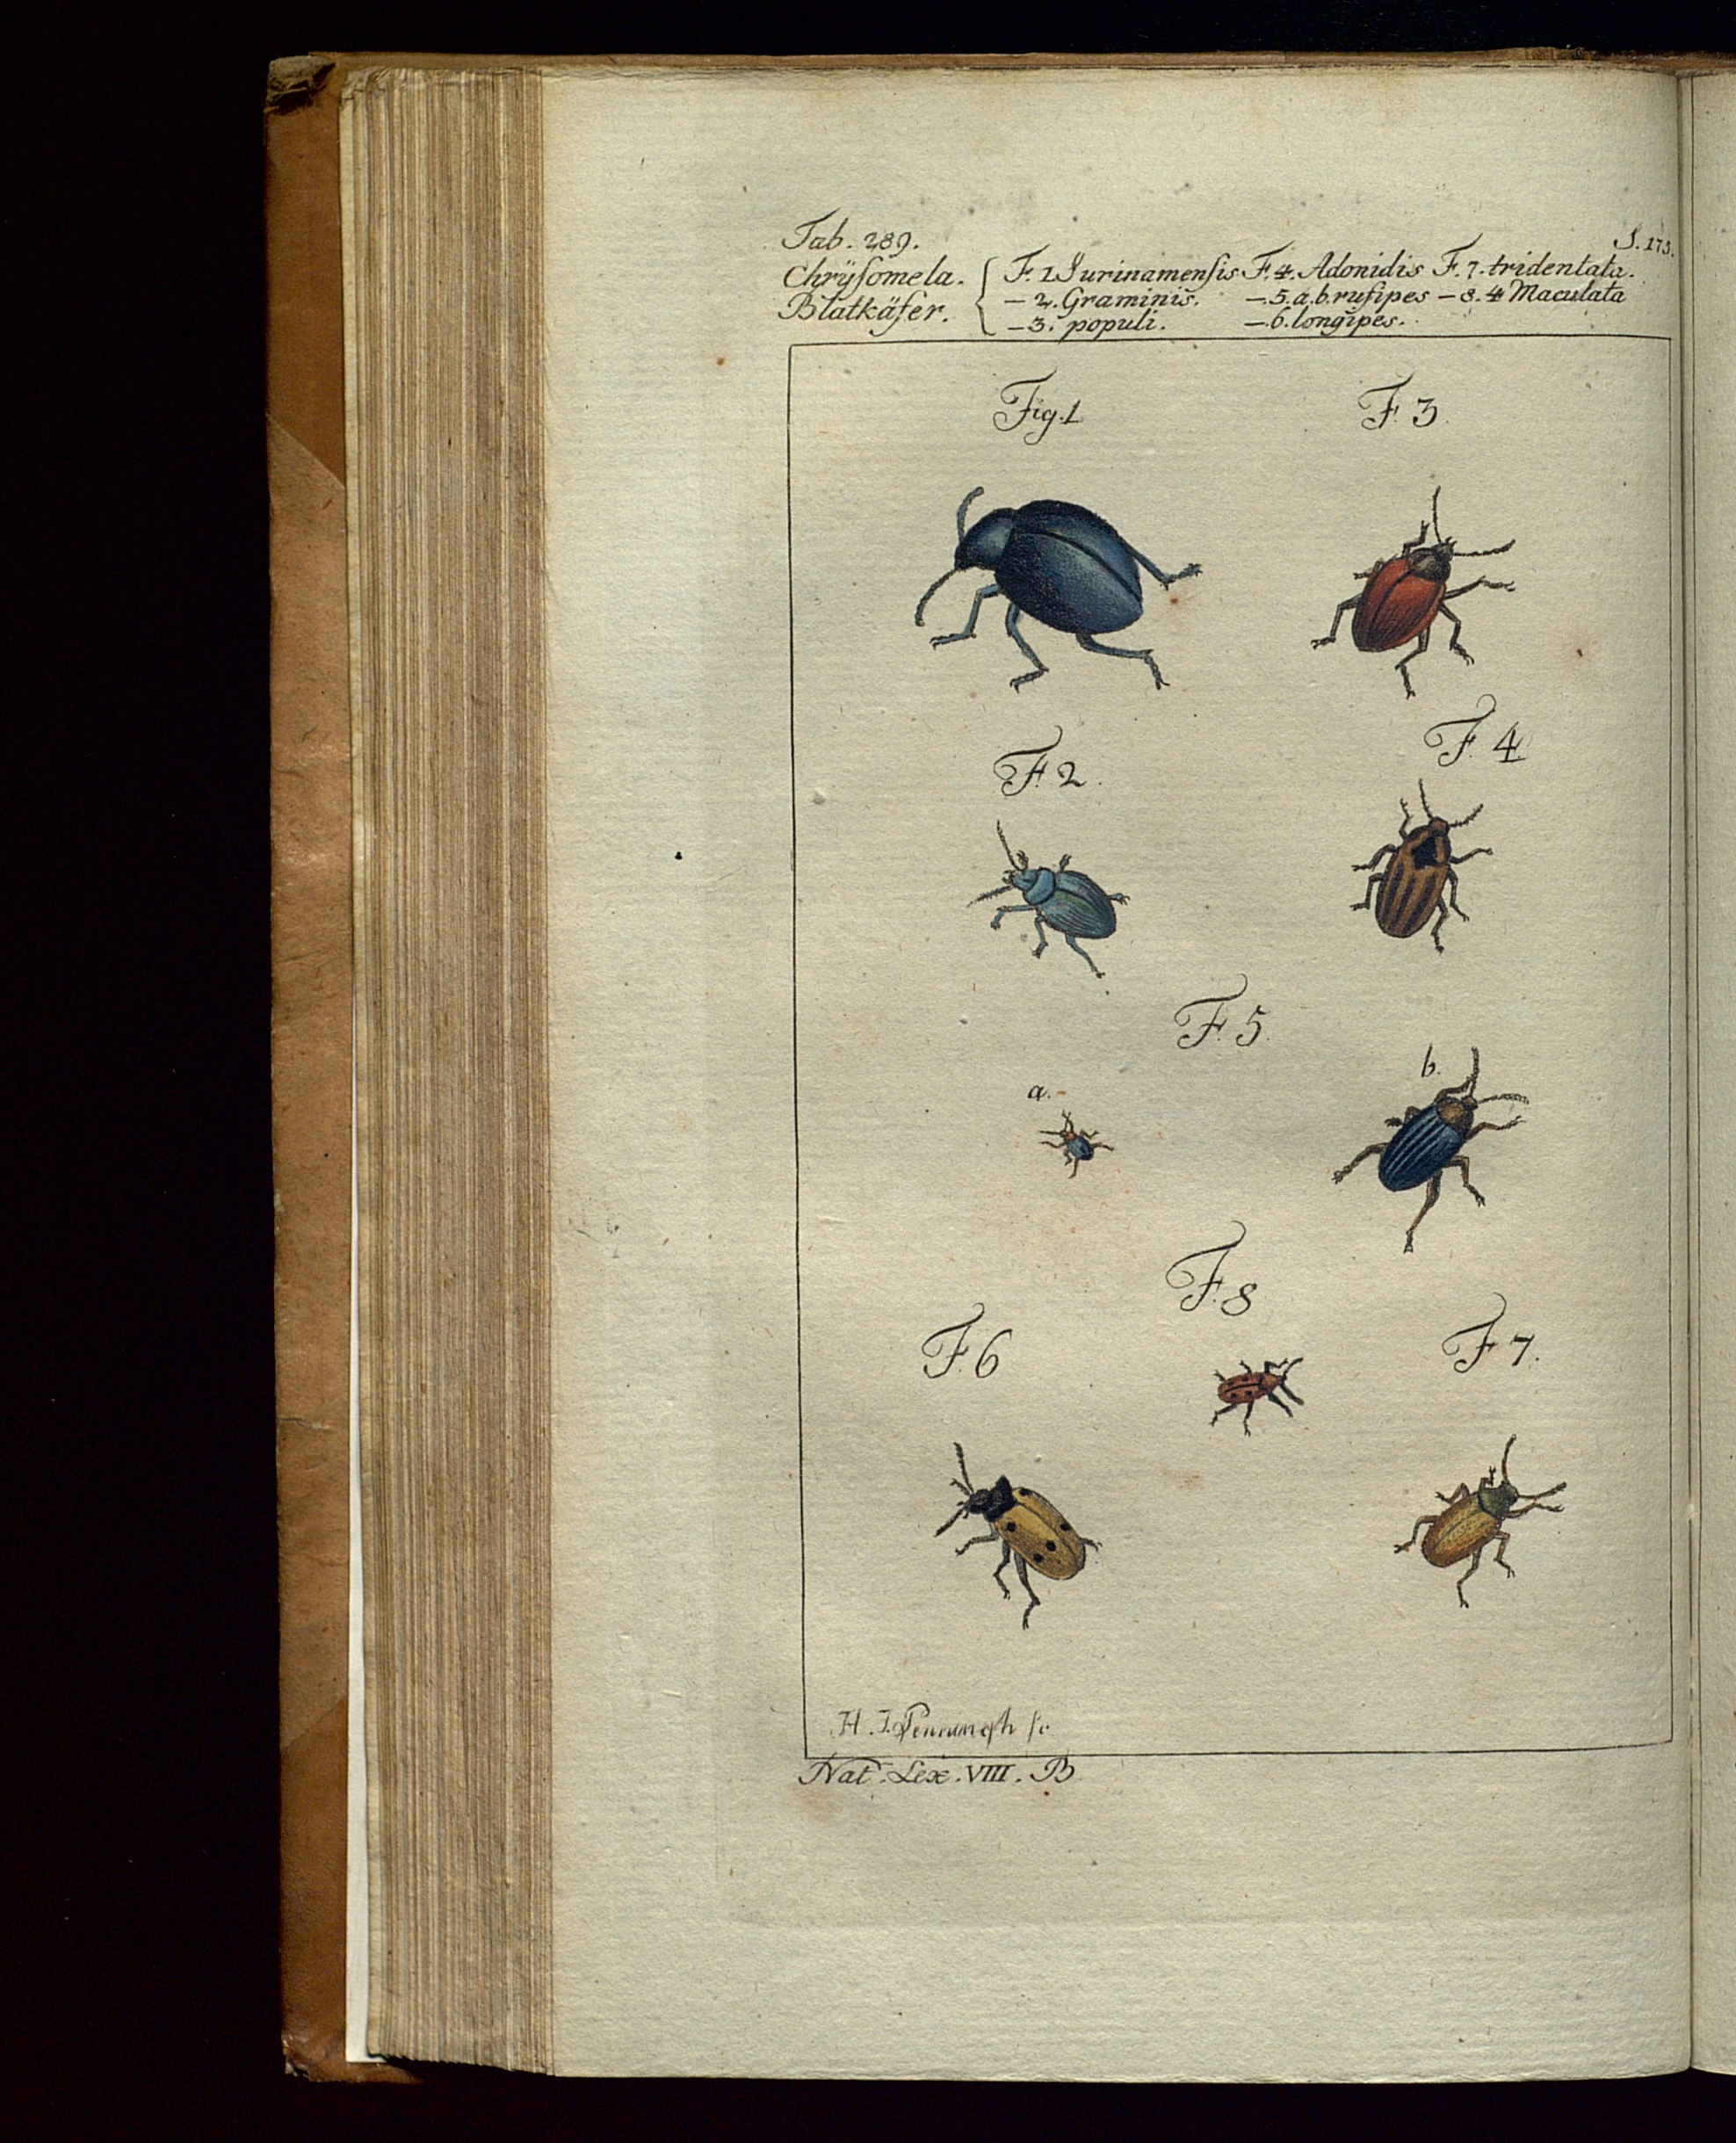 Tab. 289.
S. 173.
Chrÿsomela. { F. 1 Surinamensis F. 4. Adonidis F. 7. tridentata.
Blatkäfer. – 2. Graminis. – 5. a. b. rufipes – 8. 4 Maculata
– 3. populi. – 6. longipes.
Fig. 1
F. 3.
F. 4
F. 2.
F. 5.
a.
b.
F. 8
F. 6
F. 7.
H. J. sc
Nat. Lex. VIII. B